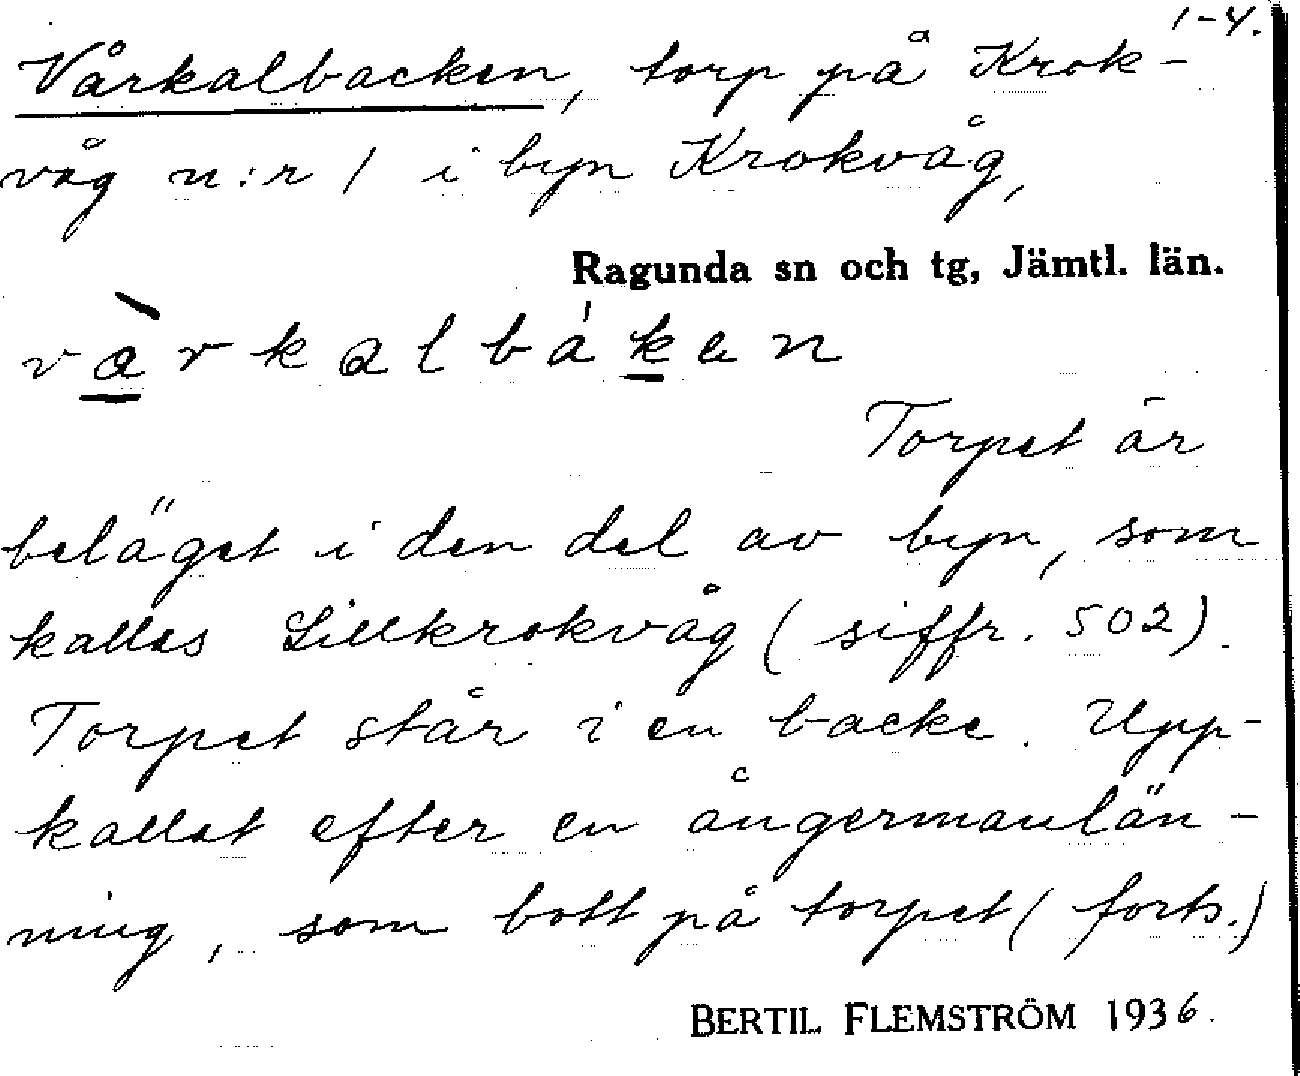 1-4.
Vårkalbacken, torp på Krok-
våg n:r 1 i byn Krokvåg,
Ragunda sn och tg, Jämtl. län.
vàrkalbáken
Torpet är
beläget i den del av byn, som
kallas Lillkrokvåg (siffr. 502).
Torpet står i en backe. Upp-
kallat efter en ångermanlän-
ning, som bott på torpet (forts.)
BERTIL FLEMSTRÖM 1936.